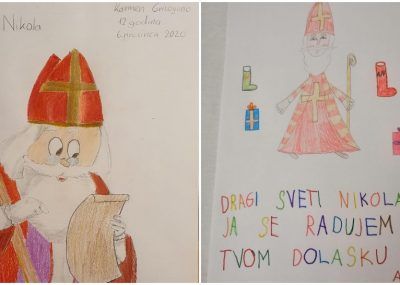 Nikola
12 godina
2020
DRAGI SVETI NIKOLA
JA SE RADUJEM
TVOM DOLASKU
A